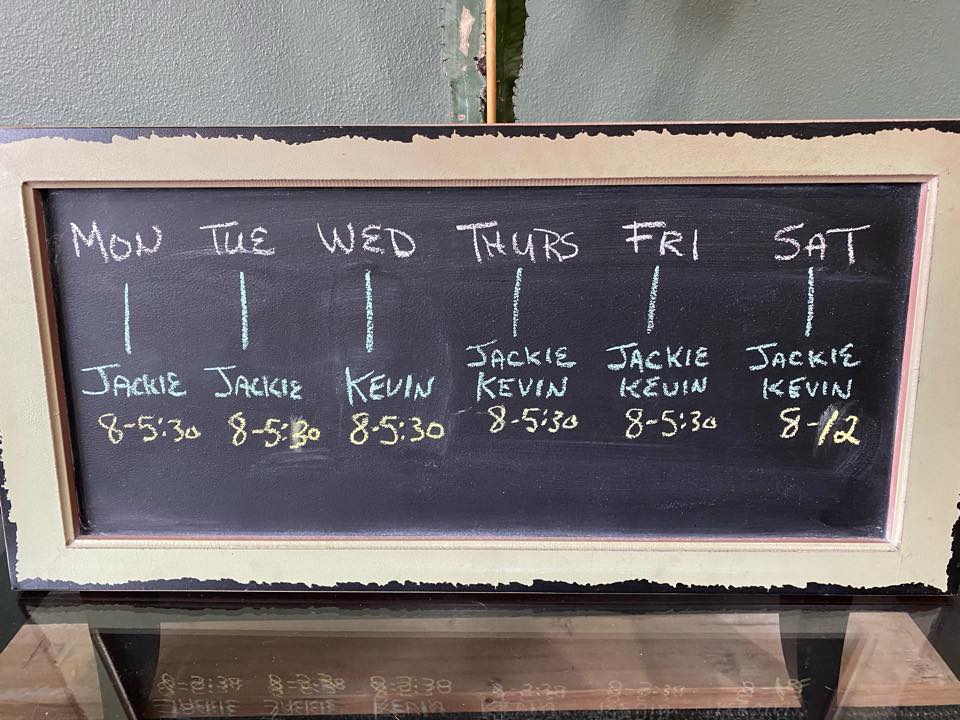 MON TUE WED THURS FRI SAT
JACKIE JACKIE KEVIN JACKIE KEVIN JACKIE KEVIN JACKIE KEVIN
8-5:30 8-5:30 8-5:30 8-5:30 8-5:30 8-12